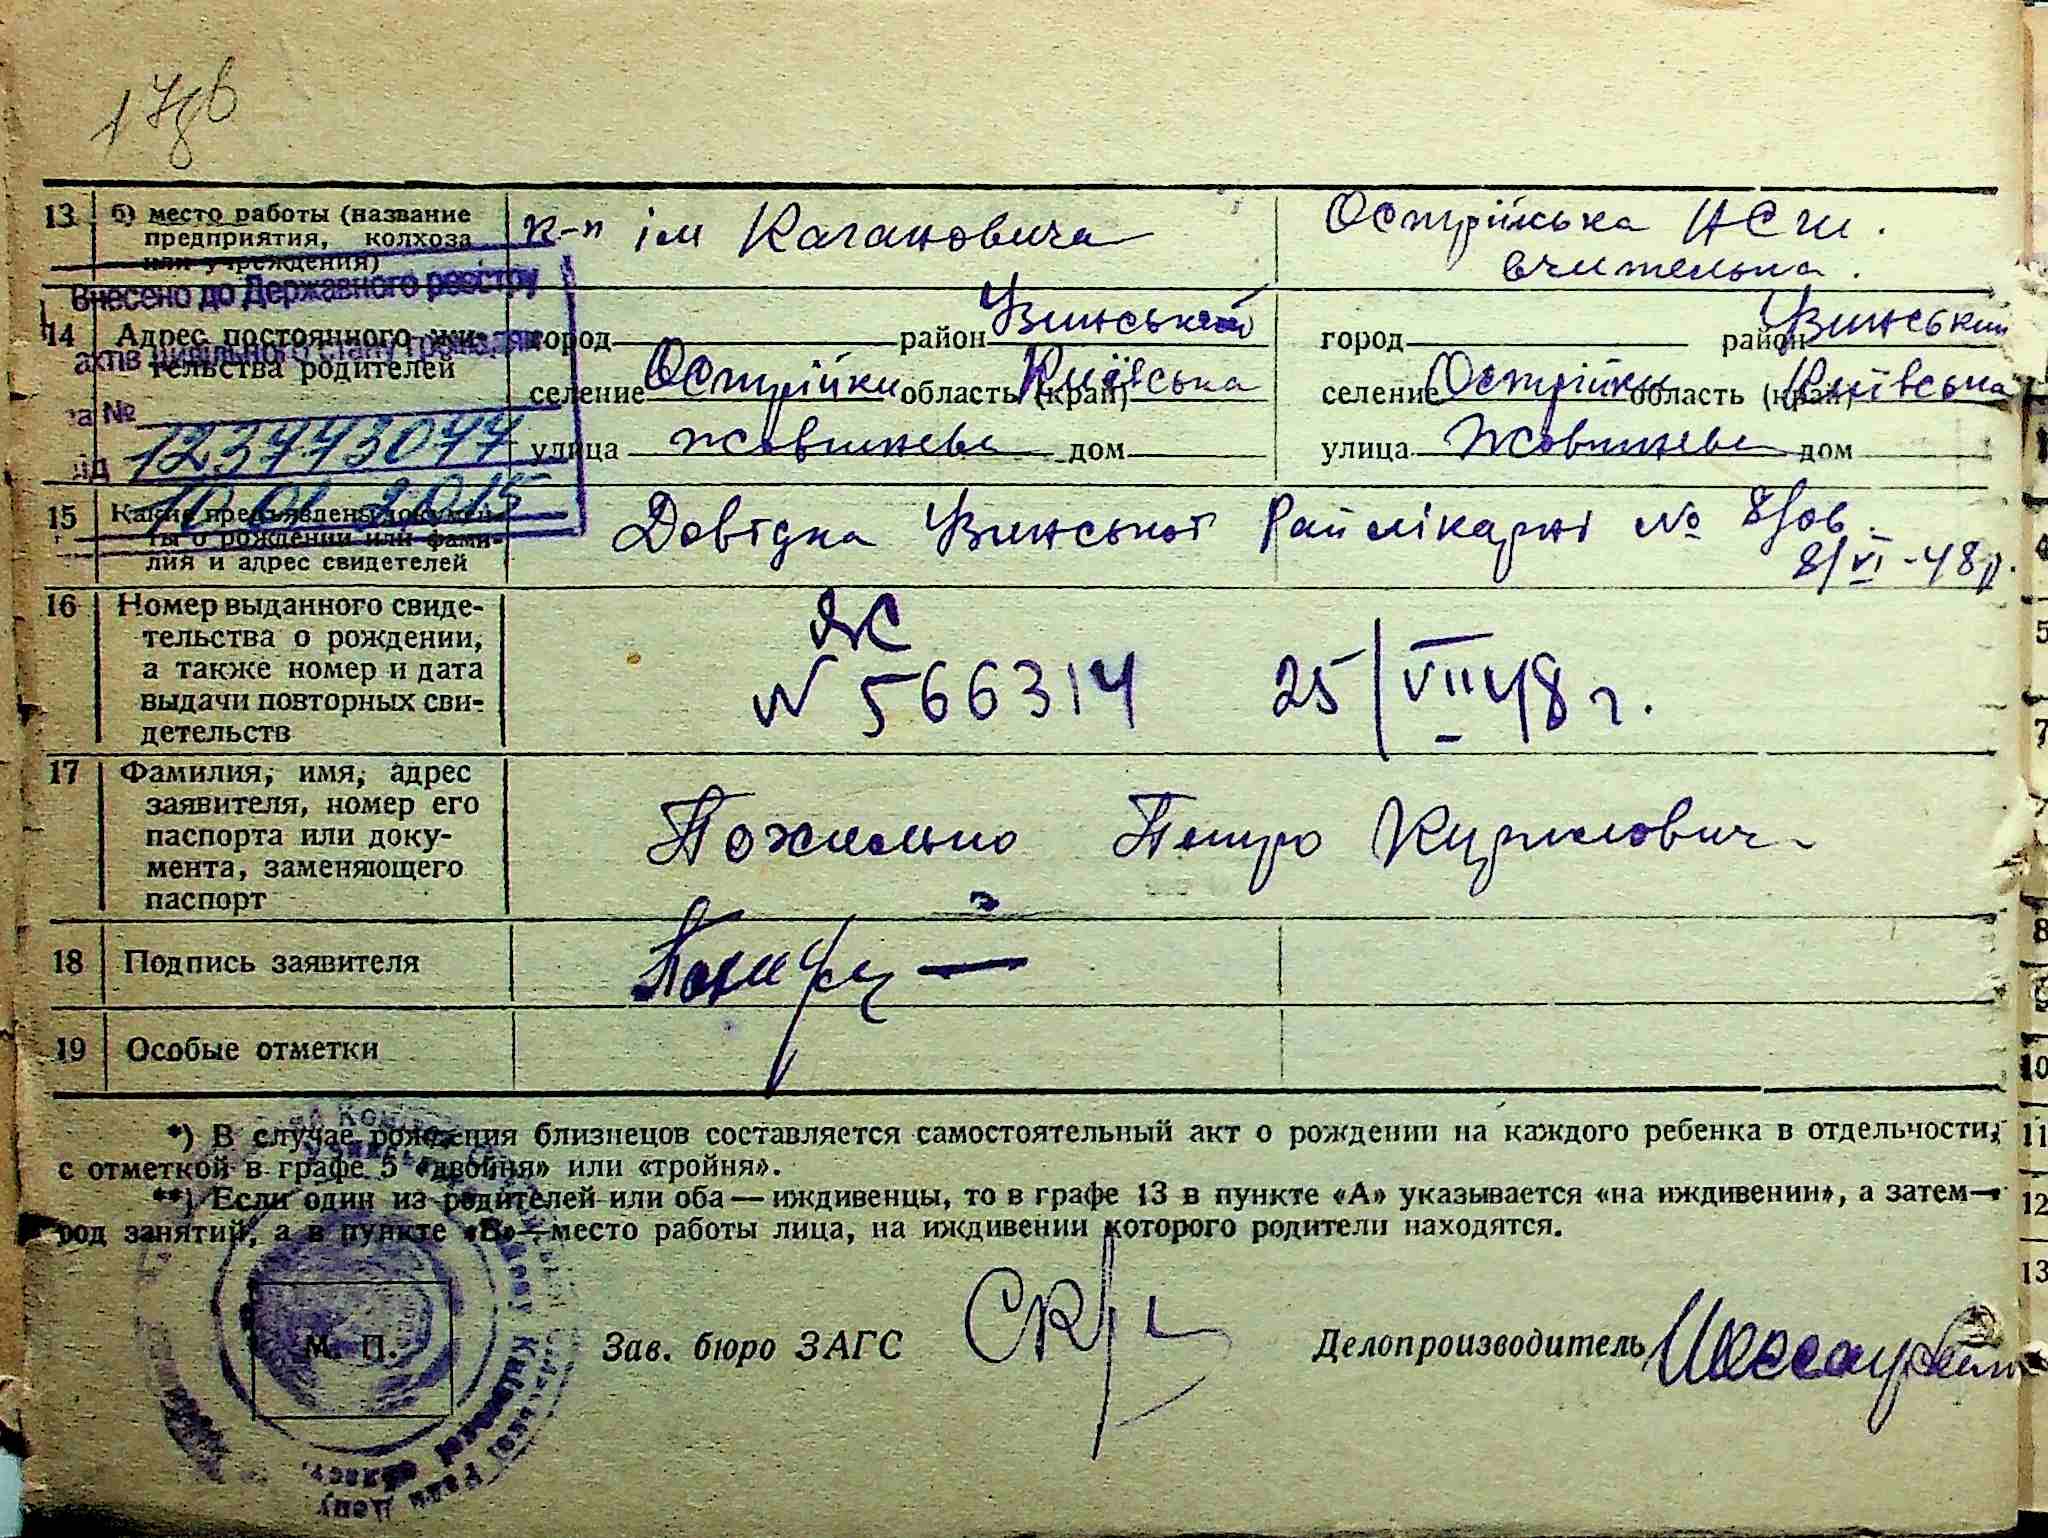 178в
13 б) место работы (название предприятия, колхоза или учреждения)
к-п ім Кагановича
Острійська НСШ.
вчителька.
Внесено до Державного реєстру
актів цивільного стану громадян
за № 123773077
від 10 01 2015
14 Адрес постоянного жительства родителей
город район Узинський
селение Острійки область (край) Київська
улица Жовтнева дом
город район Узинський
селение Острійки область (край) Київська
улица Жовтнева дом
15 Какие предъявлены документы о рождении или фамилия и адрес свидетелей
Довідка Узинської Райлікарні №
8/VI-48р.
16 Номер выданного свидетельства о рождении, а также номер и дата выдачи повторных свидетельств
ЯС
N 566314 25/VII 48 г.
17 Фамилия, имя, адрес заявителя, номер его паспорта или документа, заменяющего паспорт
Петро Кирилович
18 Подпись заявителя
19 Особые отметки
*) В случае рождения близнецов составляется самостоятельный акт о рождении на каждого ребенка в отдельности,
с отметкой в графе 5 «двойня» или «тройня».
**) Если один из родителей или оба — иждивенцы, то в графе 13 в пункте «А» указывается «на иждивении», а затем—
род занятий, а в пункте «Б»—место работы лица, на иждивении которого родители находятся.
М. П.
Зав. бюро ЗАГС
Делопроизводитель